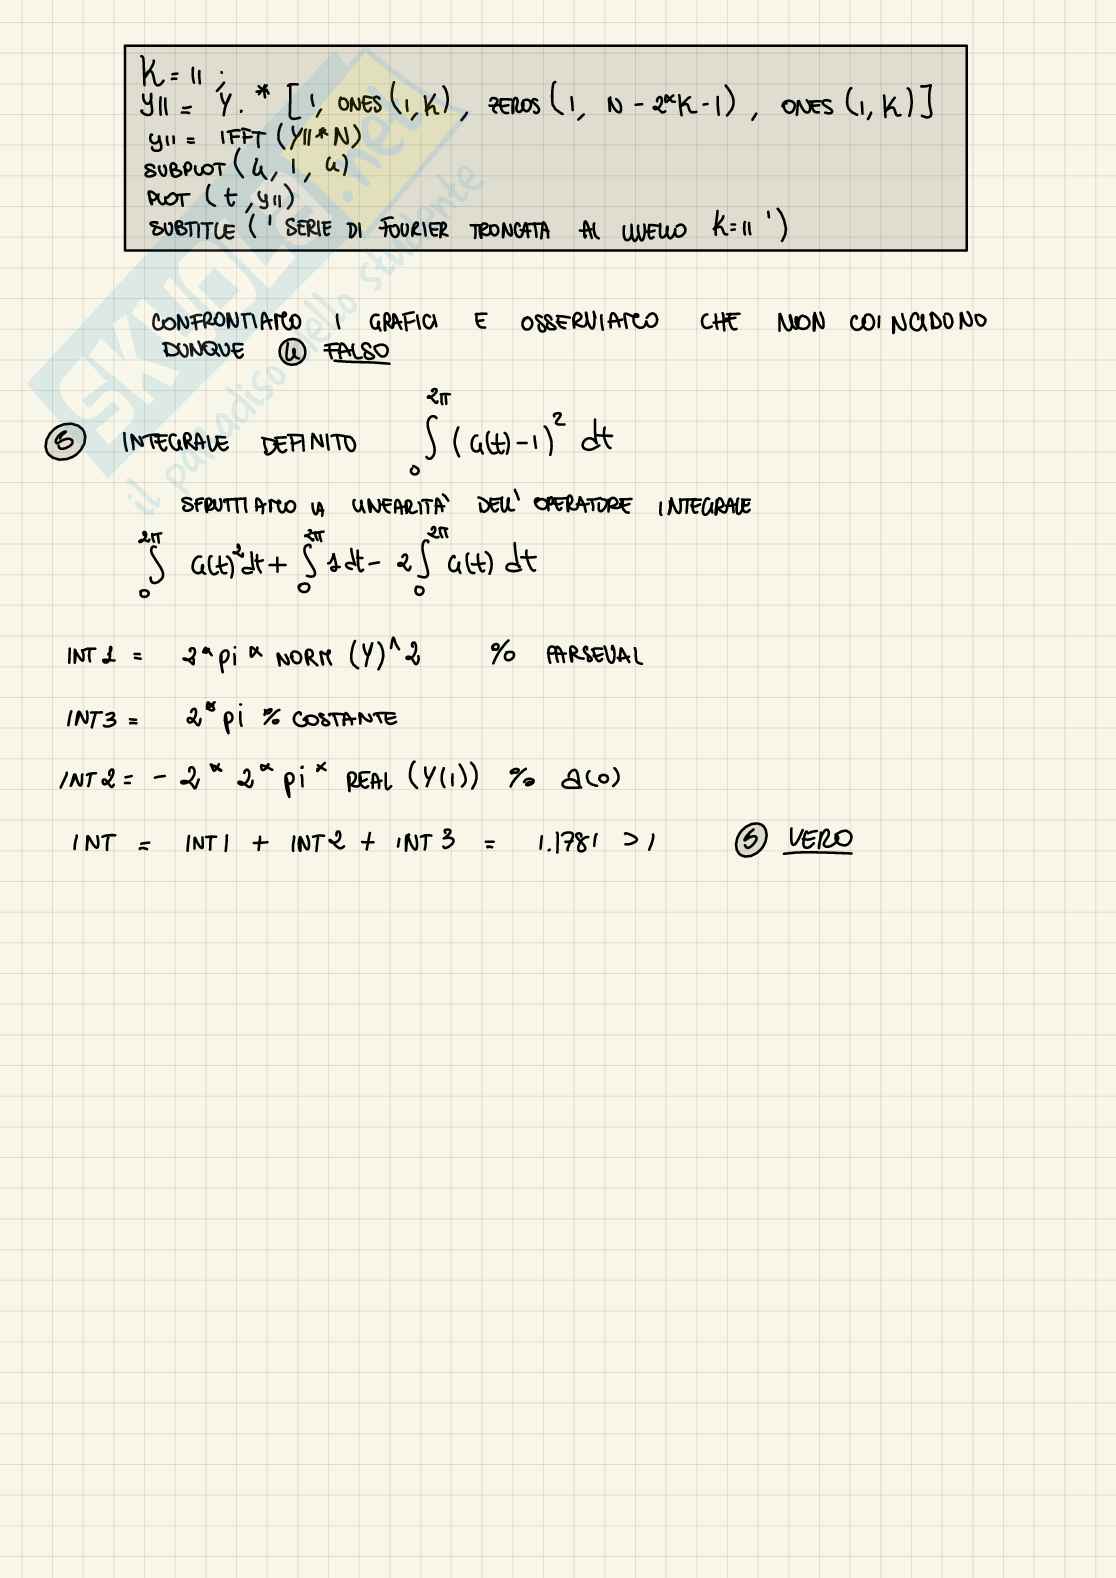 K = 11 ;
Y11 = Y .* [1, ONES(1,K), ZEROS(1, N-2*K-1), ONES(1,K)]
y11 = IFFT(Y11*N)
SUBPLOT(4, 1, 4)
PLOT (t, y11)
SUBTITLE (' SERIE DI FOURIER TRONCATA AL LIVELLO K=11 ')
CONFRONTIAMO I GRAFICI E OSSERVIAMO CHE NON COINCIDONO
DUNQUE 4 FALSO
5 INTEGRALE DEFINITO ∫₀^2π (G(t)-1)² dt
SFRUTTIAMO LA LINEARITÀ DELL' OPERATORE INTEGRALE
∫₀^2π G(t)² dt + ∫₀^2π 1 dt - 2 ∫₀^2π G(t) dt
INT 1 = 2*pi* NORM (Y)^2 % PARSEVAL
INT3 = 2*pi % COSTANTE
INT2 = - 2* 2* pi* REAL (Y(1)) % a(0)
INT = INT1 + INT2 + INT3 = 1.1781 > 1 5 VERO
SKUOLA.net
il paradiso dello studente